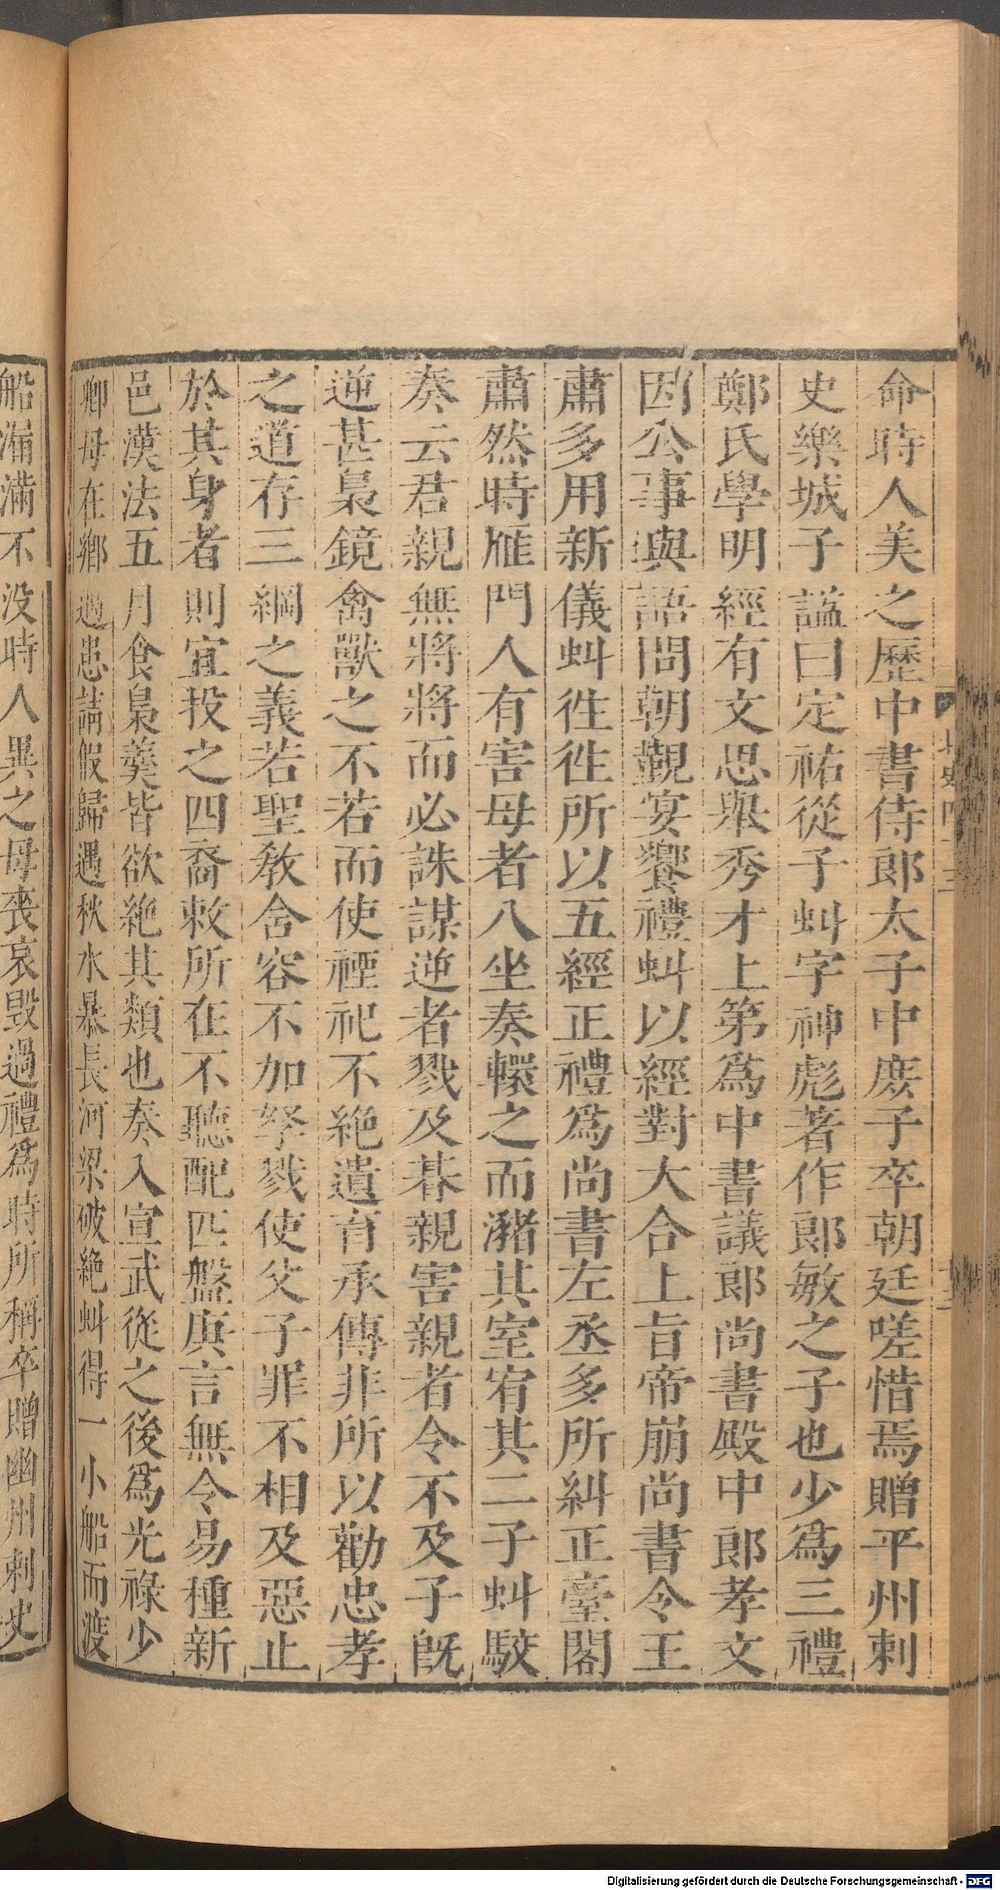 命時人美之歷中書侍郎太子中庶子卒朝廷嗟惜焉贈平州刺
史樂城子謚曰定祐從子虯字神彪著作郎敏之子也少爲三禮
鄭氏學明經有文思舉秀才上第爲中書議郎尚書殿中郎孝文
因公事與語問朝覲宴饗禮虯以經對大合上旨帝崩尚書令王
肅多用新儀虯徃徃所以五經正禮爲尚書左丞多所糾正臺閣
肅然時雁門人有害母者八坐奏轘之而瀦其室宥其二子虯駮
奏云君親無將將而必誅謀逆者戮及朞親害親者令不及子旣
逆甚梟鏡禽獸之不若而使禋祀不絶遺育承傳非所以勸忠孝
之道存三綱之義若聖敎含容不加孥戮使父子罪不相及惡止
於其身者則宜投之四裔敕所在不聽配匹盤庚言無令易種新
邑漢法五月食梟羹皆欲絶其類也奏入宣武從之後爲光祿少
卿母在鄉遇患請假歸遇秋水暴長河梁破絶虯得一小船而渡
船漏滿不没時人異之母喪哀毀過禮爲時所稱卒贈幽州刺史
Digitalisierung gefördert durch die Deutsche Forschungsgemeinschaft - DFG